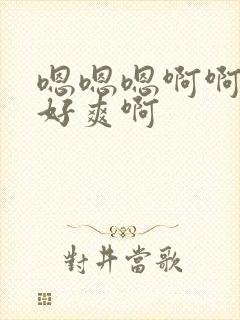 嗯嗯嗯啊啊
好爽啊
對井當歌